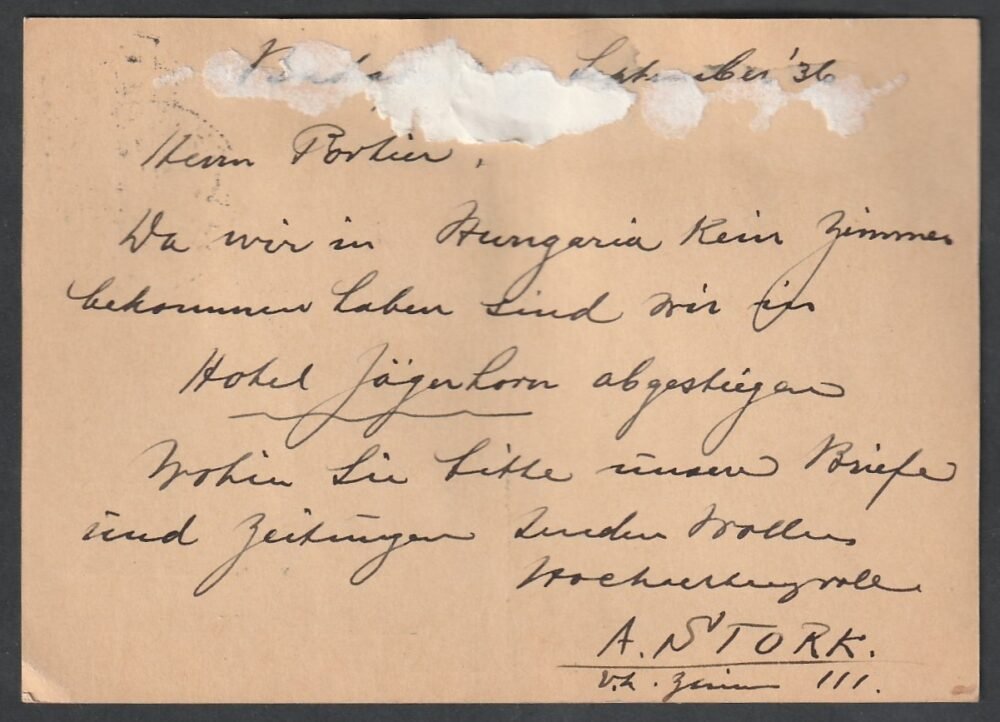 September '36
Herrn Portier,
Da wir in Hungaria kein Zimmer
bekommen haben sind wir im
Hotel Jägerhorn abgestiegen
Wohin Sie bitte unsere Briefe
und Zeitungen senden wollen
Hochachtungsvoll
A. STORK.
Zimm 111.